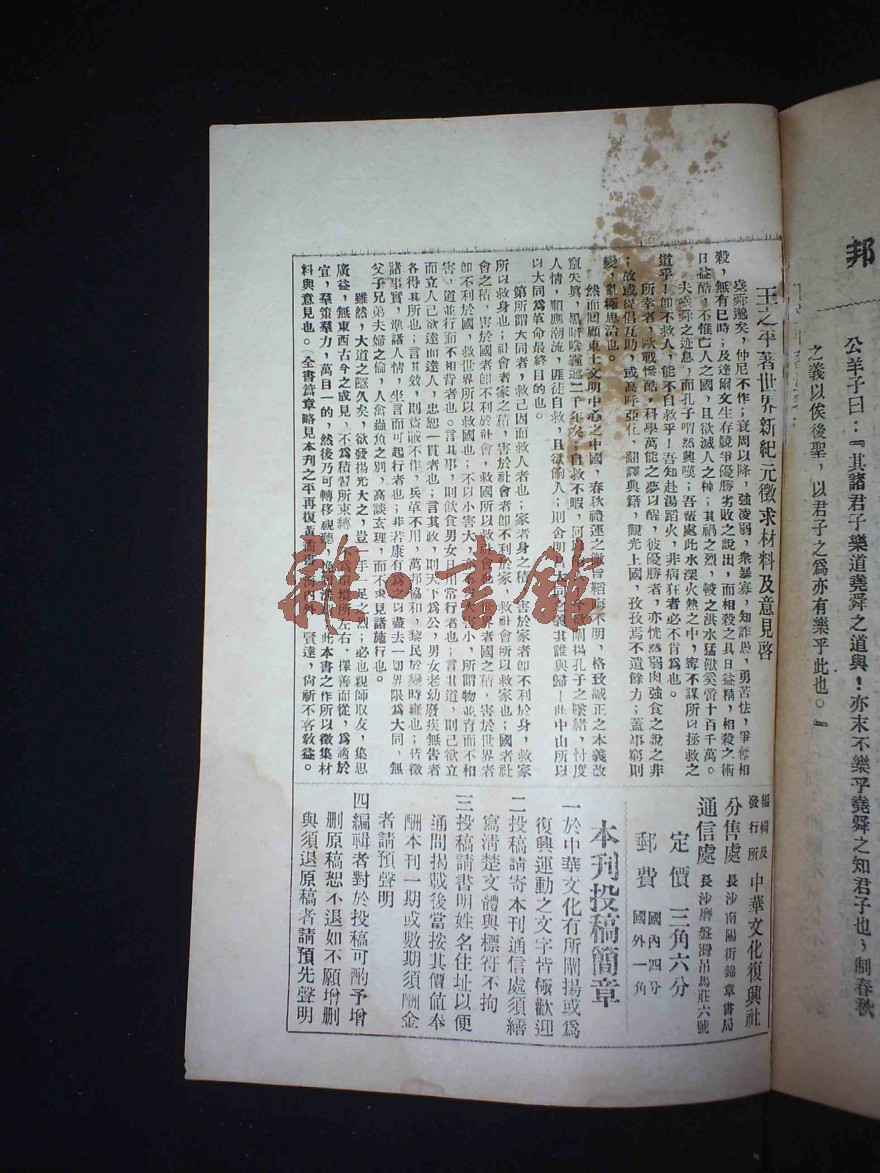 邦
公羊子曰：『其諸君子樂道堯舜之道與！亦末不樂乎堯舜之知君子也；制春秋
之義以俟後聖，以君子之爲亦有樂乎此也。』
王之平著世界新紀元徵求材料及意見啓
堯舜邈矣，仲尼不作；衰周以降，強凌弱，衆暴寡，知詐愚，勇苦怯，爭奪相
殺，無有已時；及達爾文生存競爭優勝劣敗之說出，而相殺之具日益精，相殺之術
日益酷，不惟亡人之國，且欲滅人之種；其禍之烈，較之洪水猛獸奚啻十百千萬。
夫堯舜之迹息，而孔子喟然興嘆；吾輩處此水深火熱之中，寗不謀所以拯救之
道乎！卽不救人，能不自救乎！吾知赴湯蹈火，非病狂者必不肯爲也。
所幸者，歐戰慘酷，科學萬能之夢以醒，彼優勝者，亦恍然弱肉強食之說之非
；故或提倡互助，或高呼亞化，翻譯典籍，觀光上國，孜孜焉不遺餘力；蓋事窮則
變，亂極思治也。
然而回顧東土文明中心之中國，春秋禮運之微言韜晦不明，格致誠正之本義改
竄失眞，黑暗陰霾逾二千年矣；自救不暇，人闡揚孔子之墜緒，忖度
人情，順應潮流，匪徒自救，且欲救人；則舍明大同之義其誰與歸！此中山所以
以大同爲革命最終目的也。
第所謂大同者，救己因而救人者也；家者身之積，害於家者卽不利於身，救家
所以救身也；社會者家之積，害於社會者卽不利於家，救社會所以救家也；國者社
會之積，害於國者卽不利於社會，救國所以救社會也；世界者國之積，害於世界者
卽不利於國，救世界所以救國也；不以小害大，不以大害小，所謂物並育而不相
害，道並行而不相背者也。言其事，則飲食男女日用常行者也；言其道，則己欲立
而立人己欲達而達人，忠恕一貫者也；言其政，則天下爲公，男女老幼廢疾無告者
各得其所也；言其效，則盜竊不作，兵革不用，萬邦協和，黎民於變時雍也；皆徵
諸事實，準諸人情，坐言而可起行者也；非若康有爲之以盡去一切界限爲大同，無
父子兄弟夫婦之倫，人禽蟲魚之別，高談玄理，而不求見諸施行也。
雖然，大道之隱久矣，欲發揚光大之，豈一手一足之烈；必也親師取友，集思
廣益，無東西古今之成見，不爲積習所束縛，不爲環境所左右，擇善而從，爲適於
宜，羣策羣力，萬目一的，然後乃可轉移視聽，此本書之作所以徵集材
料與意見也。（全書篇章略見本刊之平再復黃） 海內外賢達，尙祈不吝教益。
編輯及
發行所 中華文化復興社
分售處 長沙南陽街錦章書局
通信處 長沙磨盤灣吊馬莊六號
定價 三角六分
郵費 國內四分
國外一角
本刊投稿簡章
一於中華文化有所闡揚或爲
復興運動之文字皆極歡迎
二投稿請寄本刊通信處須繕
寫清楚文體與標符不拘
三投稿請書明姓名住址以便
通問揭載後當按其價值奉
酬本刊一期或數期須酬金
者請預聲明
四編輯者對於投稿可酌予增
删原稿恕不退如不願增删
與須退原稿者請預先聲明
雜·書館